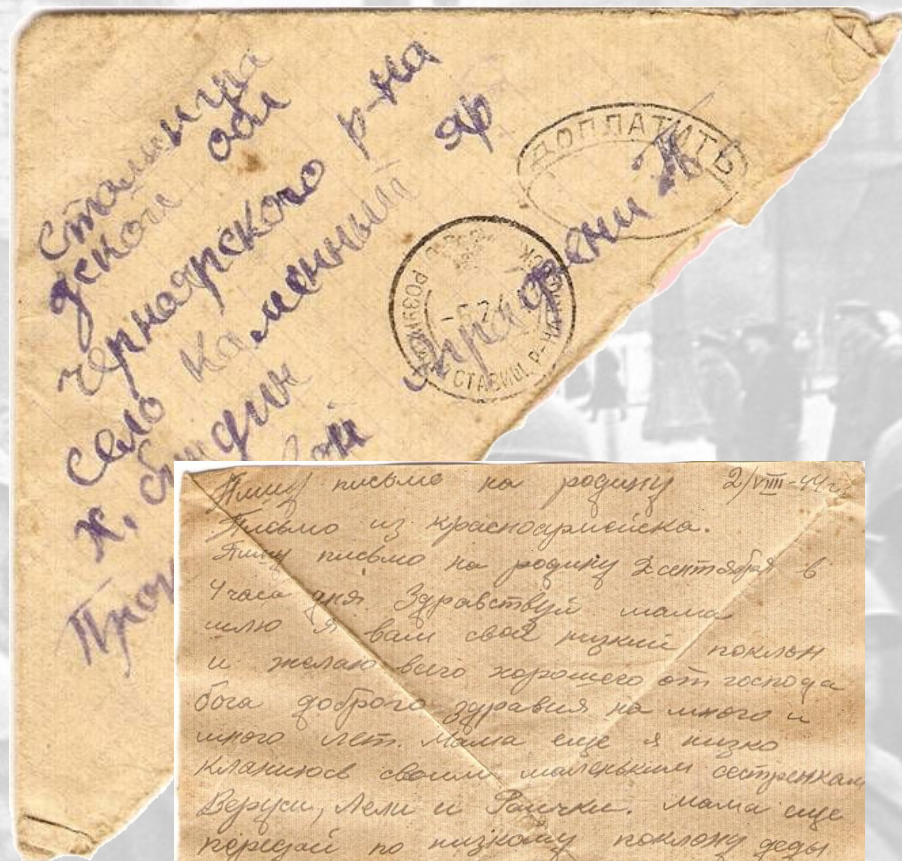 Сталингра
дской обл
Черноярского р-на
село Каменный яр
х,
ДОПЛАТИТЬ
СТАВИЩ. Р-НА
Пишу письмо на родину 2/VIII-44г
Письмо из красноармейска.
Пишу письмо на родину 2 сентября в
4 часа дня. Здравствуй мама
шлю я вам свой низкий поклон
и желаю всего хорошего от господа
бога доброго здравия на много и
много лет. Мама еще я низко
кланиюсь своим маленьким сестренкам
Веруси, Лели и Раички. Мама еще
передай по низкому поклону деды